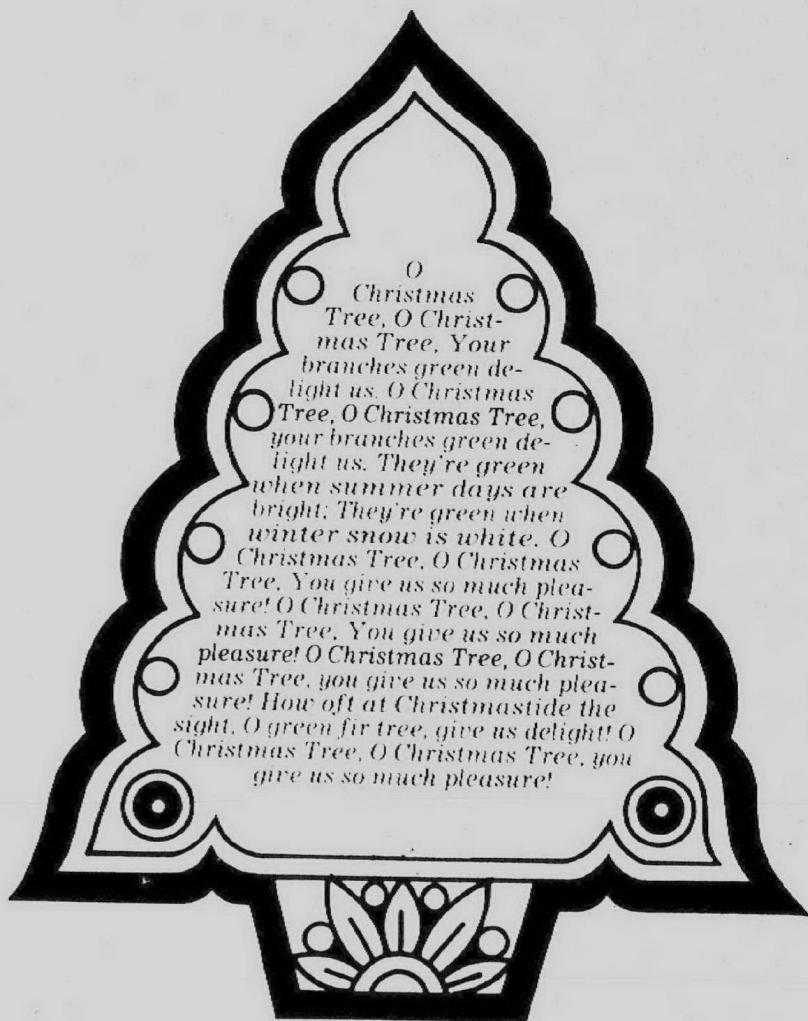 O
Christmas
Tree, O Christ-
mas Tree, Your
branches green de-
light us. O Christmas
Tree, O Christmas Tree,
your branches green de-
light us. They're green
when summer days are
bright; They're green when
winter snow is white. O
Christmas Tree, O Christmas
Tree, You give us so much plea-
sure! O Christmas Tree, O Christ-
mas Tree, You give us so much
pleasure! O Christmas Tree, O Christ-
mas Tree, you give us so much plea-
sure! How oft at Christmastide the
sight, O green fir tree, give us delight! O
Christmas Tree, O Christmas Tree, you
give us so much pleasure!